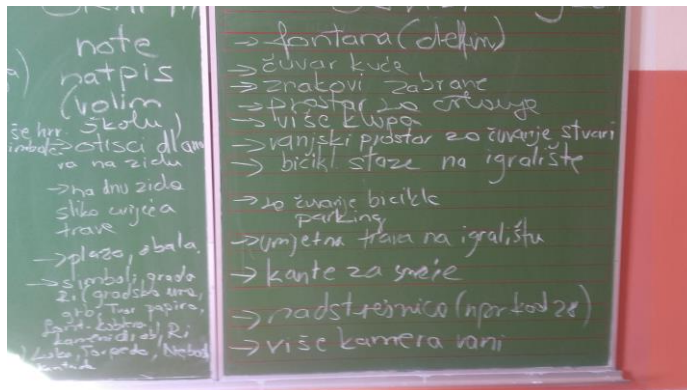 note
natpis
(volim
školu)
še hrr.
→ otisci dlano
va na zidu
→ na dnu zida
slika cvijeća
trave
→ plaža, obala.
→ simboli grada
Ri (gradska ura,
grb, Tvor. papira,
Kameni di
Torpedo, Nebod
→ fontana (delfin)
→ čuvar kuće
→ znakovi zabrane
→ prostor za crtanje
→ više klupa
→ vanjski prostor za čuvanje stvari
→ bicikl staze na igralište
→ za čuvanje bicikle
parking
→ umjetna trava na igralištu
→ kante za smeće
→ nadstrešnica (npr. kod 28)
→ više kamera vani